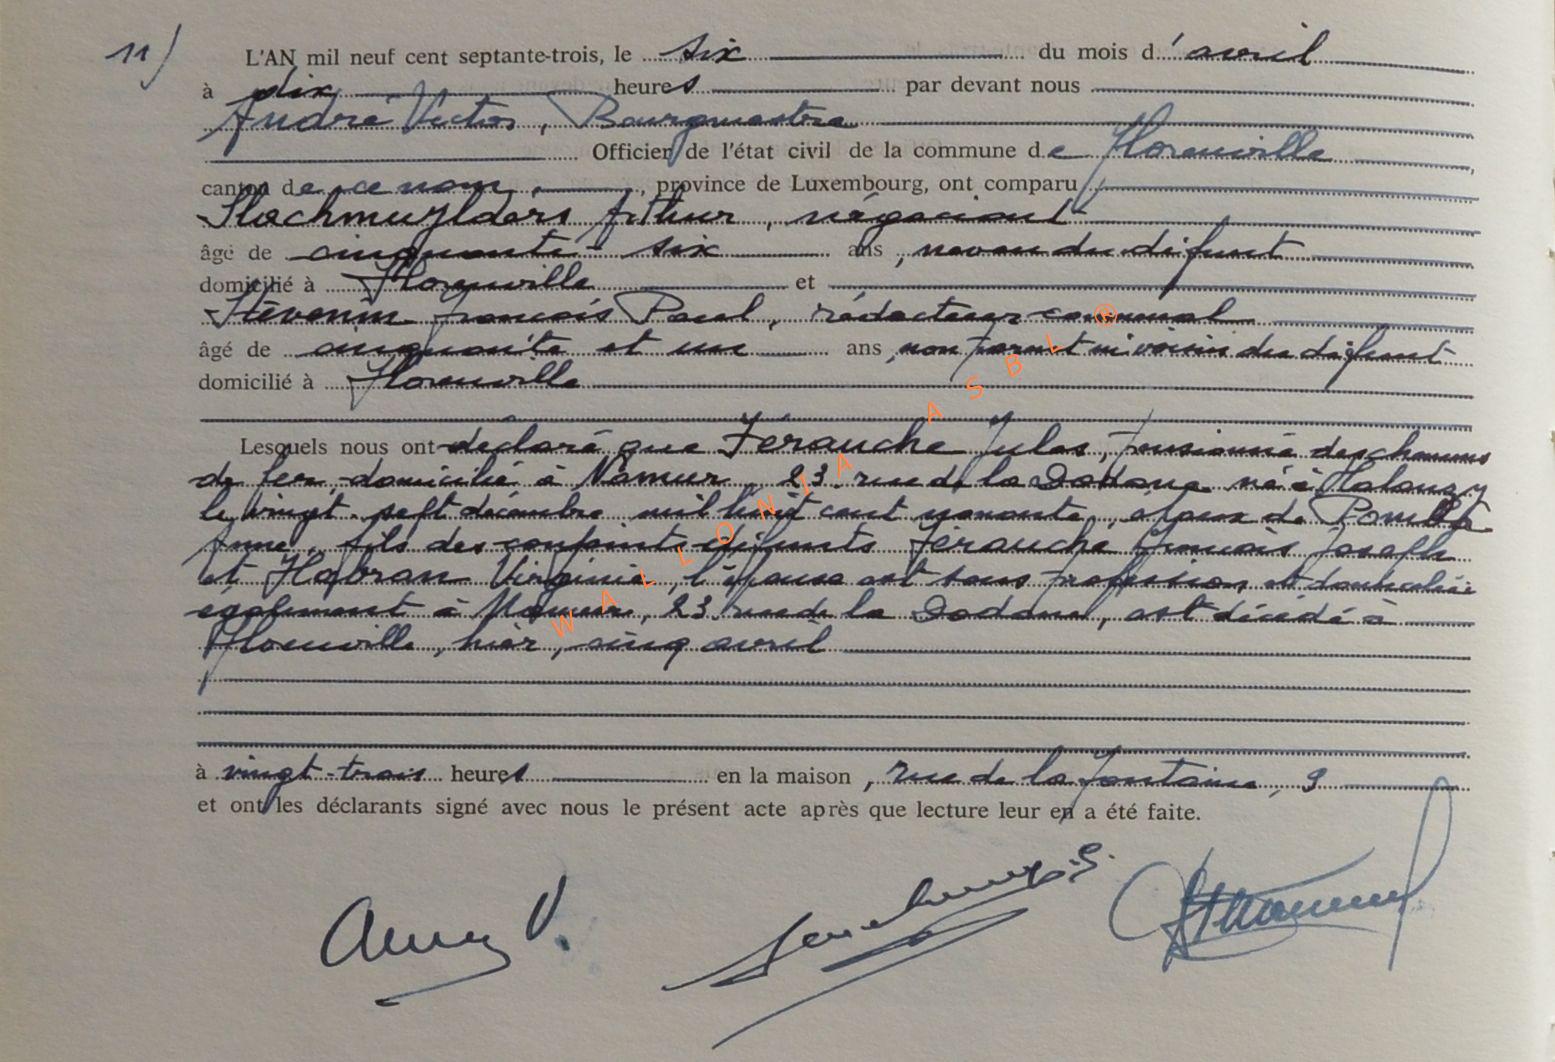 11)
L'AN mil neuf cent septante-trois, le six du mois d'avril
à dix heures par devant nous
André Victor, Bourgmestre
Officier de l'état civil de la commune de Florenville
canton de ce nom, province de Luxembourg, ont comparu
Slachmuylders Arthur, négociant
âgé de cinquante-six ans, neveu du défunt
domicilié à Florenville et
Stévenin François Paul, rédacteur communal
âgé de cinquante et un ans, non parent ni voisin du défunt
domicilié à Florenville
Lesquels nous ont déclaré que Férauche Jules, pensionné des chemins
de fer, domicilié à Namur, 23 rue de la Dodane né à Halanzy
le vingt-sept décembre mil huit cent nonante, époux de
Anne, fils des conjoints défunts Férauche François Joseph
et Habran Virginie, l'épouse est sans profession et domiciliée
également à Namur, 23 rue de la Dodane, est décédé à
Florenville, hier, cinq avril
à vingt-trois heures en la maison, rue de la Fontaine, 9
et ont les déclarants signé avec nous le présent acte après que lecture leur en a été faite.
WALLONIA ASBL ®